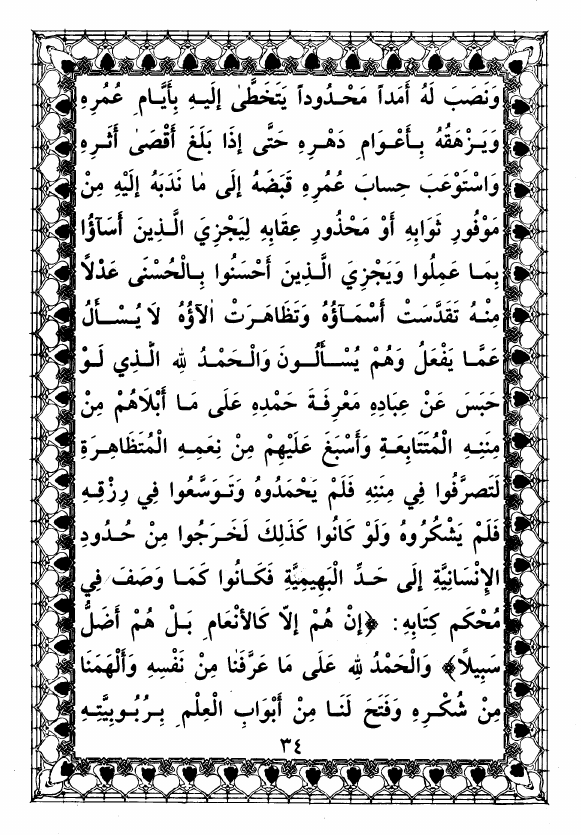 وَنَصَبَ لَهُ أَمَداً مَحْدُوداً يَتَخَطَّىٰ إلَيهِ بِأَيَّامِ عُمُرِهِ
وَيَـزْهَقُهُ بِـأَعْـوَامِ دَهْـرِهِ حَتَّى إذَا بَلَغَ أَقْصَىٰ أَثَـرِهِ
وَاسْتَوْعَبَ حِسابَ عُمُرِهِ قَبَضَهُ إلَى مٰا نَدَبَهُ إلَيْهِ مِنْ
مَوْفُورِ ثَوَابِهِ أَوْ مَحْذُورِ عِقَابِهِ لِيَجْزِيَ الَّـذِينَ أَسَآؤُا
بِمَـا عَمِلُوا وَيَجْزِيَ الَّـذِينَ أَحْسَنُوا بِـالْحُسْنَى عَدْلاً
مِنْـهُ تَقَدَّسَتْ أَسْمَـآؤُهُ وَتَظَاهَـرَتْ اٰلاَؤُهُ لاَ يُسْــأَلُ
عَمَّـا يَفْعَلُ وَهُمْ يُسْــأَلُــونَ وَالْـحَمْـدُ لِلّٰهِ الَّـذِي لَـوْ
حَبَسَ عَنْ عِبَادِهِ مَعْرِفَةَ حَمْدِهِ عَلَى مَـا أَبْلَاهُمْ مِنْ
مِنَنِـهِ الْمُتَتَابِعَـةِ وَأَسْبَغَ عَلَيْهِمْ مِنْ نِعَمِـهِ الْمُتَظَاهِـرَةِ
لَتَصرَّفُوا فِي مِنَنِهِ فَلَمْ يَحْمَدُوهُ وَتَـوَسَّعُوا فِي رِزْقِـهِ
فَلَمْ يَشْكُرُوهُ وَلَوْ كَانُوا كَذَلِكَ لَخَرَجُوا مِنْ حُـدُودِ
الإِنْسَانِيَّةِ إلَى حَدِّ الْبَهِيمِيَّةِ فَكَـانُوا كَمَـا وَصَفَ فِي
مُحْكَمِ كِتَابِهِ: ﴿إنْ هُمْ إلاّ كَالأَنْعَامِ بَـلْ هُمْ أَضَلُّ
سَبِيلاً﴾ وَالْحَمْدُ لِلّٰهِ عَلَى مَا عَرَّفَنٰا مِنْ نَفْسِهِ وَأَلْهَمَنَا
مِنْ شُكْـرِهِ وَفَتَحَ لَنَـا مِنْ أَبْوَابِ الْعِلْمِ بِـرُبُوبِيَّتِـهِ
٣٤